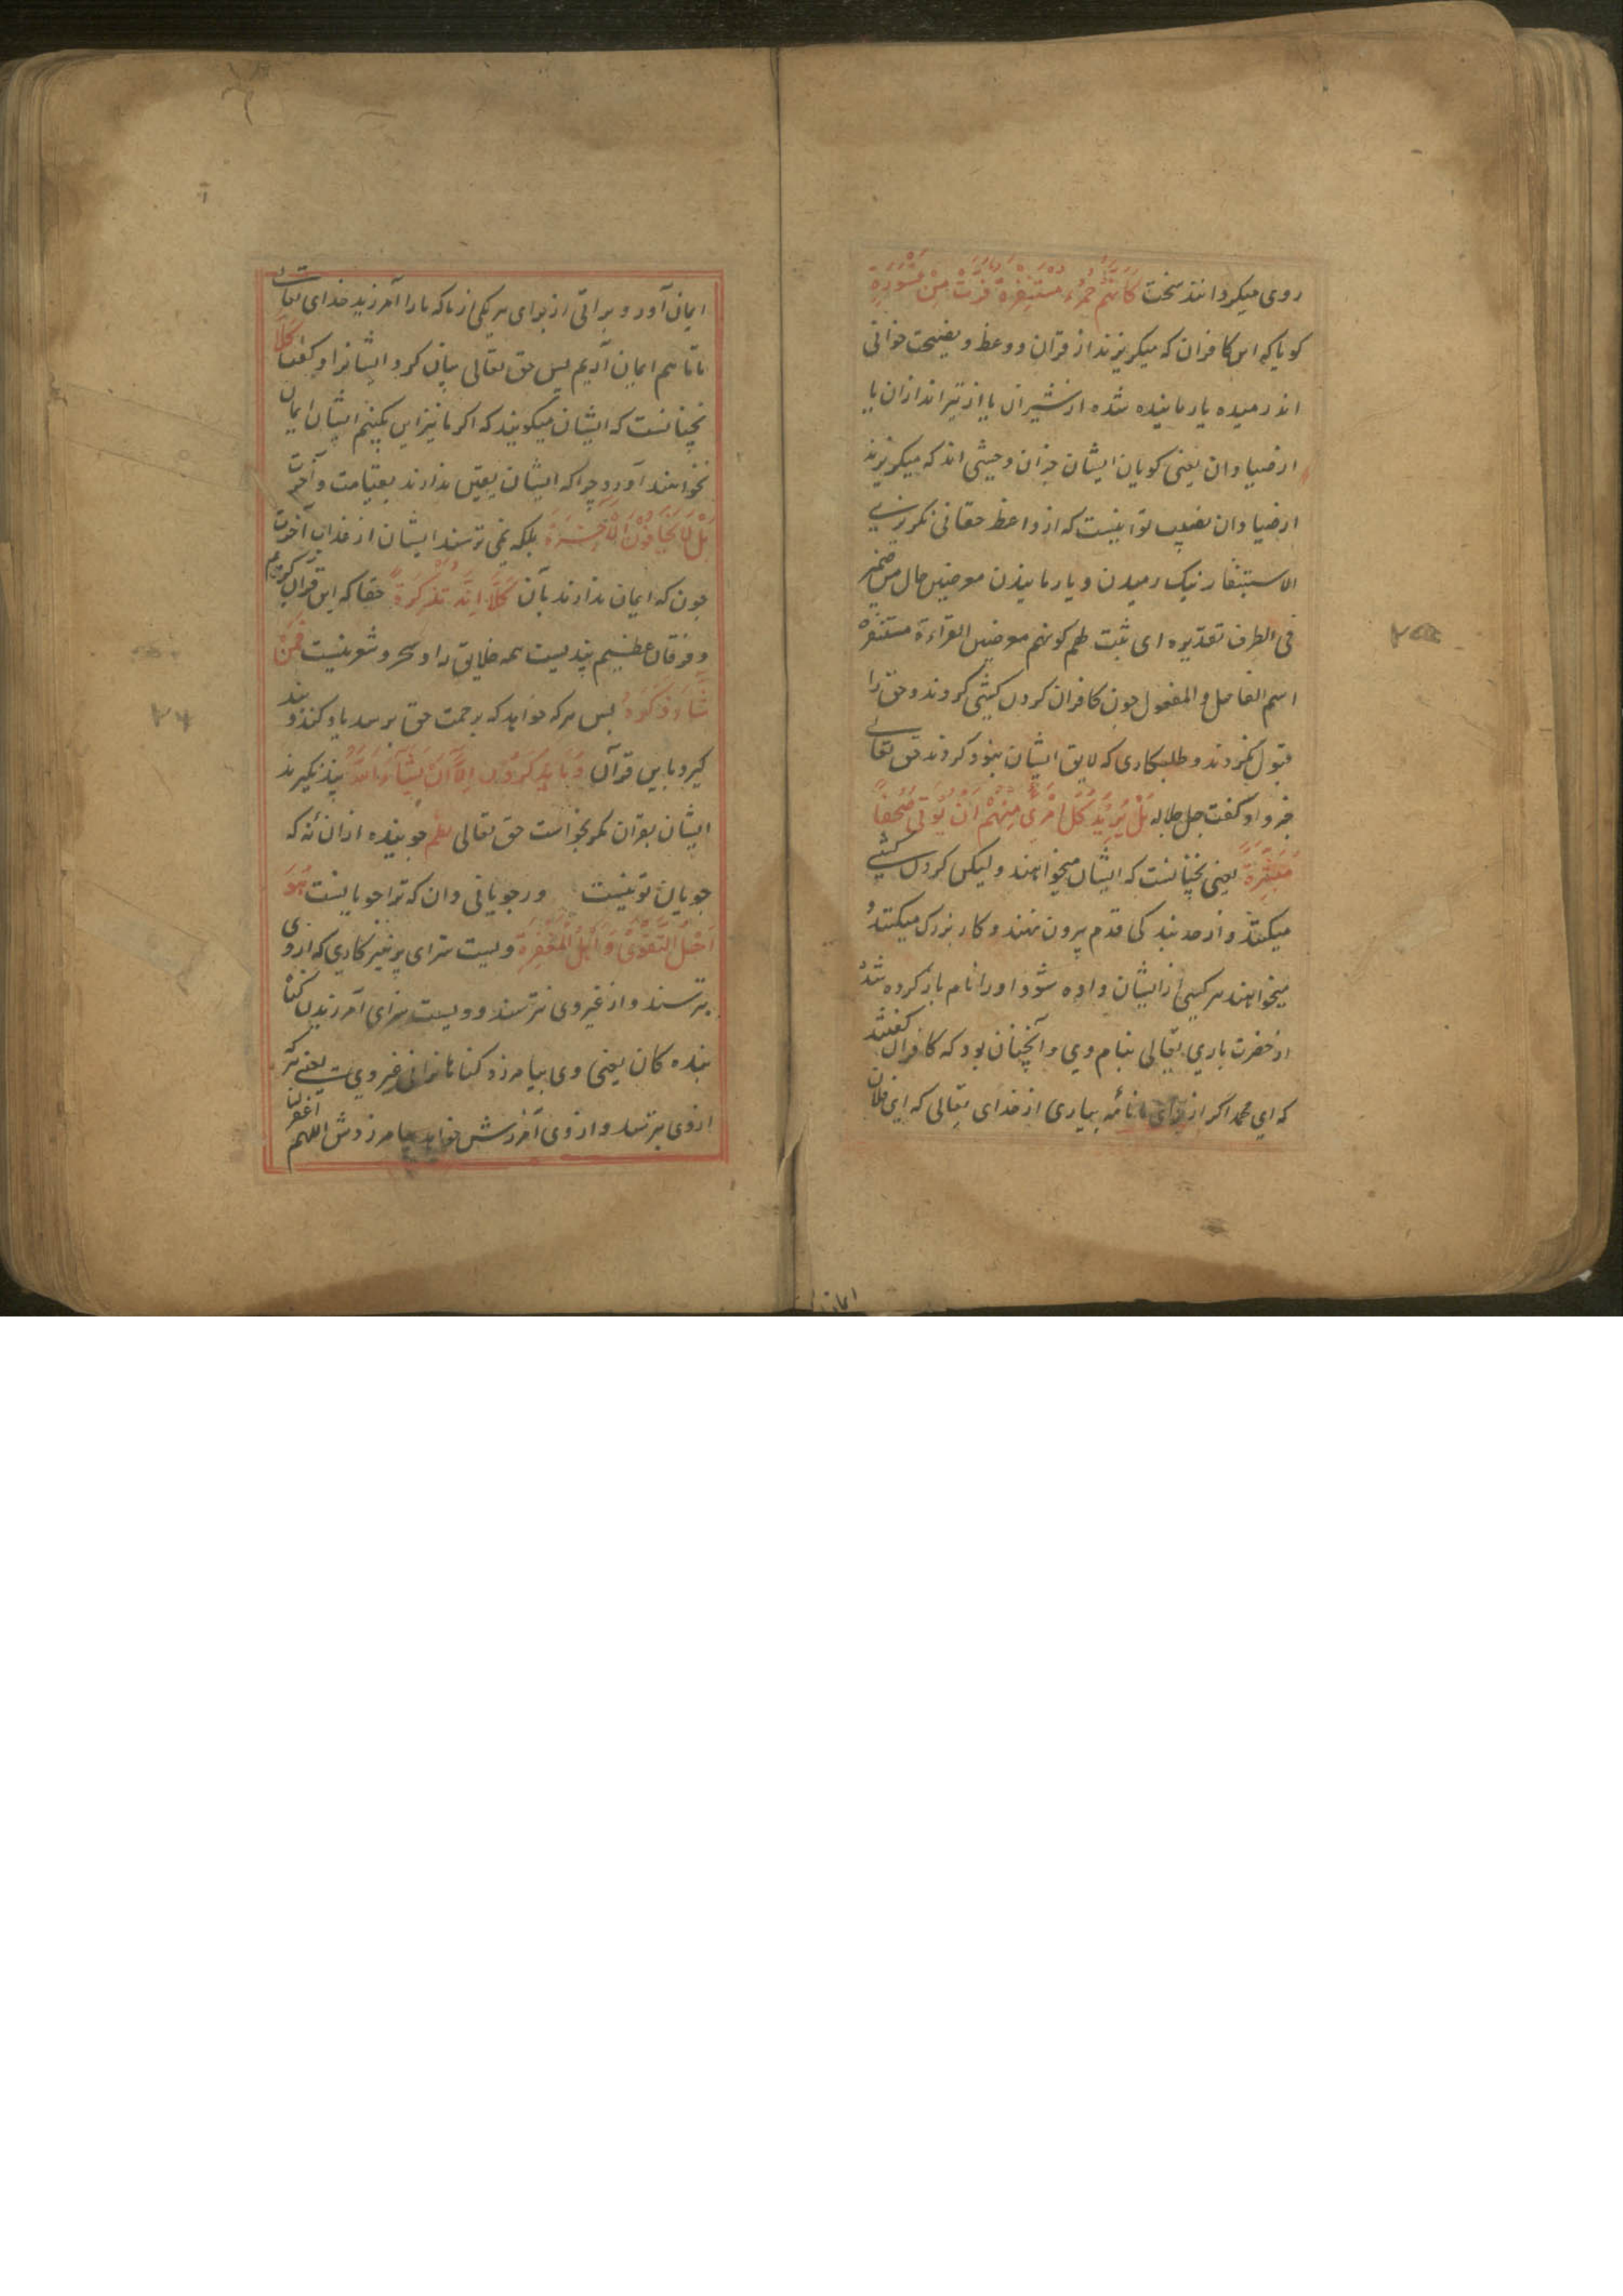 روی میکردانند سخت كَأَنَّهُمْ حُمُرٌ مُسْتَنْفِرَةٌ فَرَّتْ مِنْ قَسْوَرَةٍ
کویا که این کافران که میکریزند از قران و وعظ و نصیحت خرانی
اند رمیده یا رمانیده شده از شیران یا از تیراندازان یا
از صیادان یعنی کویان ایشان خران وحشی اند که میکریزند
از صیادان نصیب تو اینست که از واعظ حقانی نکریزی
الاستنفار نیک رمیدن و یا رمانیدن معرضین حال من ضمیر
فی الظرف تقدیره ای ثبت لهم کونهم معرضین القراءة مستنفرة
اسم الفاعل و المفعول چون کافران کردن کشی کردند و حق را
قبول نکردند و طلبکاری که لایق ایشان نبود کردند حق تعالی
خبر داد کفت جل جلاله بَلْ يُرِيدُ كُلُّ امْرِئٍ مِنْهُمْ أَنْ يُؤْتَى صُحُفًا
مُنَشَّرَةً یعنی نچنانست که ایشان میخواهند و لیکن کردن کشی
میکنند و از حد بندکی قدم بیرون نهند و کار بزرک میکنند و
میخواهند هر کسی از ایشان داده شود او را نام باز کرده شده
از حضرت باری تعالی بنام وی و آنچنان بود که کافران کفتند
که ای محمد اکر از برای ما نامه بیاری از خدای تعالی که این فلان
ایمان
ایمان آورد و براتی از برای هر یکی از ما که ما را آمرزید خدای تعالی
تا ما هم ایمان آریم پس حق تعالی بیان کرد ایشانرا و کفت كَلَّا
نچنانست که ایشان میکویند که اکر ما نیز این بکنیم ایشان ایمان
نخواهند آورد چرا که ایشان یقین ندارند بقیامت و آخرت
بَلْ لَا يَخَافُونَ الْآخِرَةَ بلکه نمی ترسند ایشان از عذاب آخرت
چون که ایمان ندارند بآن كَلَّا إِنَّهُ تَذْكِرَةٌ حقا که این قران کریم
و فرقان عظیم پندیست همه خلایق را و سحر و شعر نیست فَمَنْ
شَاءَ ذَكَرَهُ پس هر که خواهد که برحمت حق برسد یاد کند و پند
کیرد باین قرآن وَمَا يَذْكُرُونَ إِلَّا أَنْ يَشَاءَ اللَّهُ پند نکیرند
ایشان بقران مکر بخواست حق تعالی نظم جوینده ازان نه که
جویان تو نیست ور جویانی دان که ترا جویانست هُوَ
أَهْلُ التَّقْوَى وَأَهْلُ الْمَغْفِرَةِ ویست سزای پرهیزکاری که از وی
بترسند و از غیر وی نترسند و ویست سزای آمرزیدن کناه
بنده کان یعنی وی بیامرزد کناهانرا نی غیر وی یعنی هر که
از وی بترسد و از وی آمرزش خواهد بیامرزدش اللهم اغفر لنا
۲۴